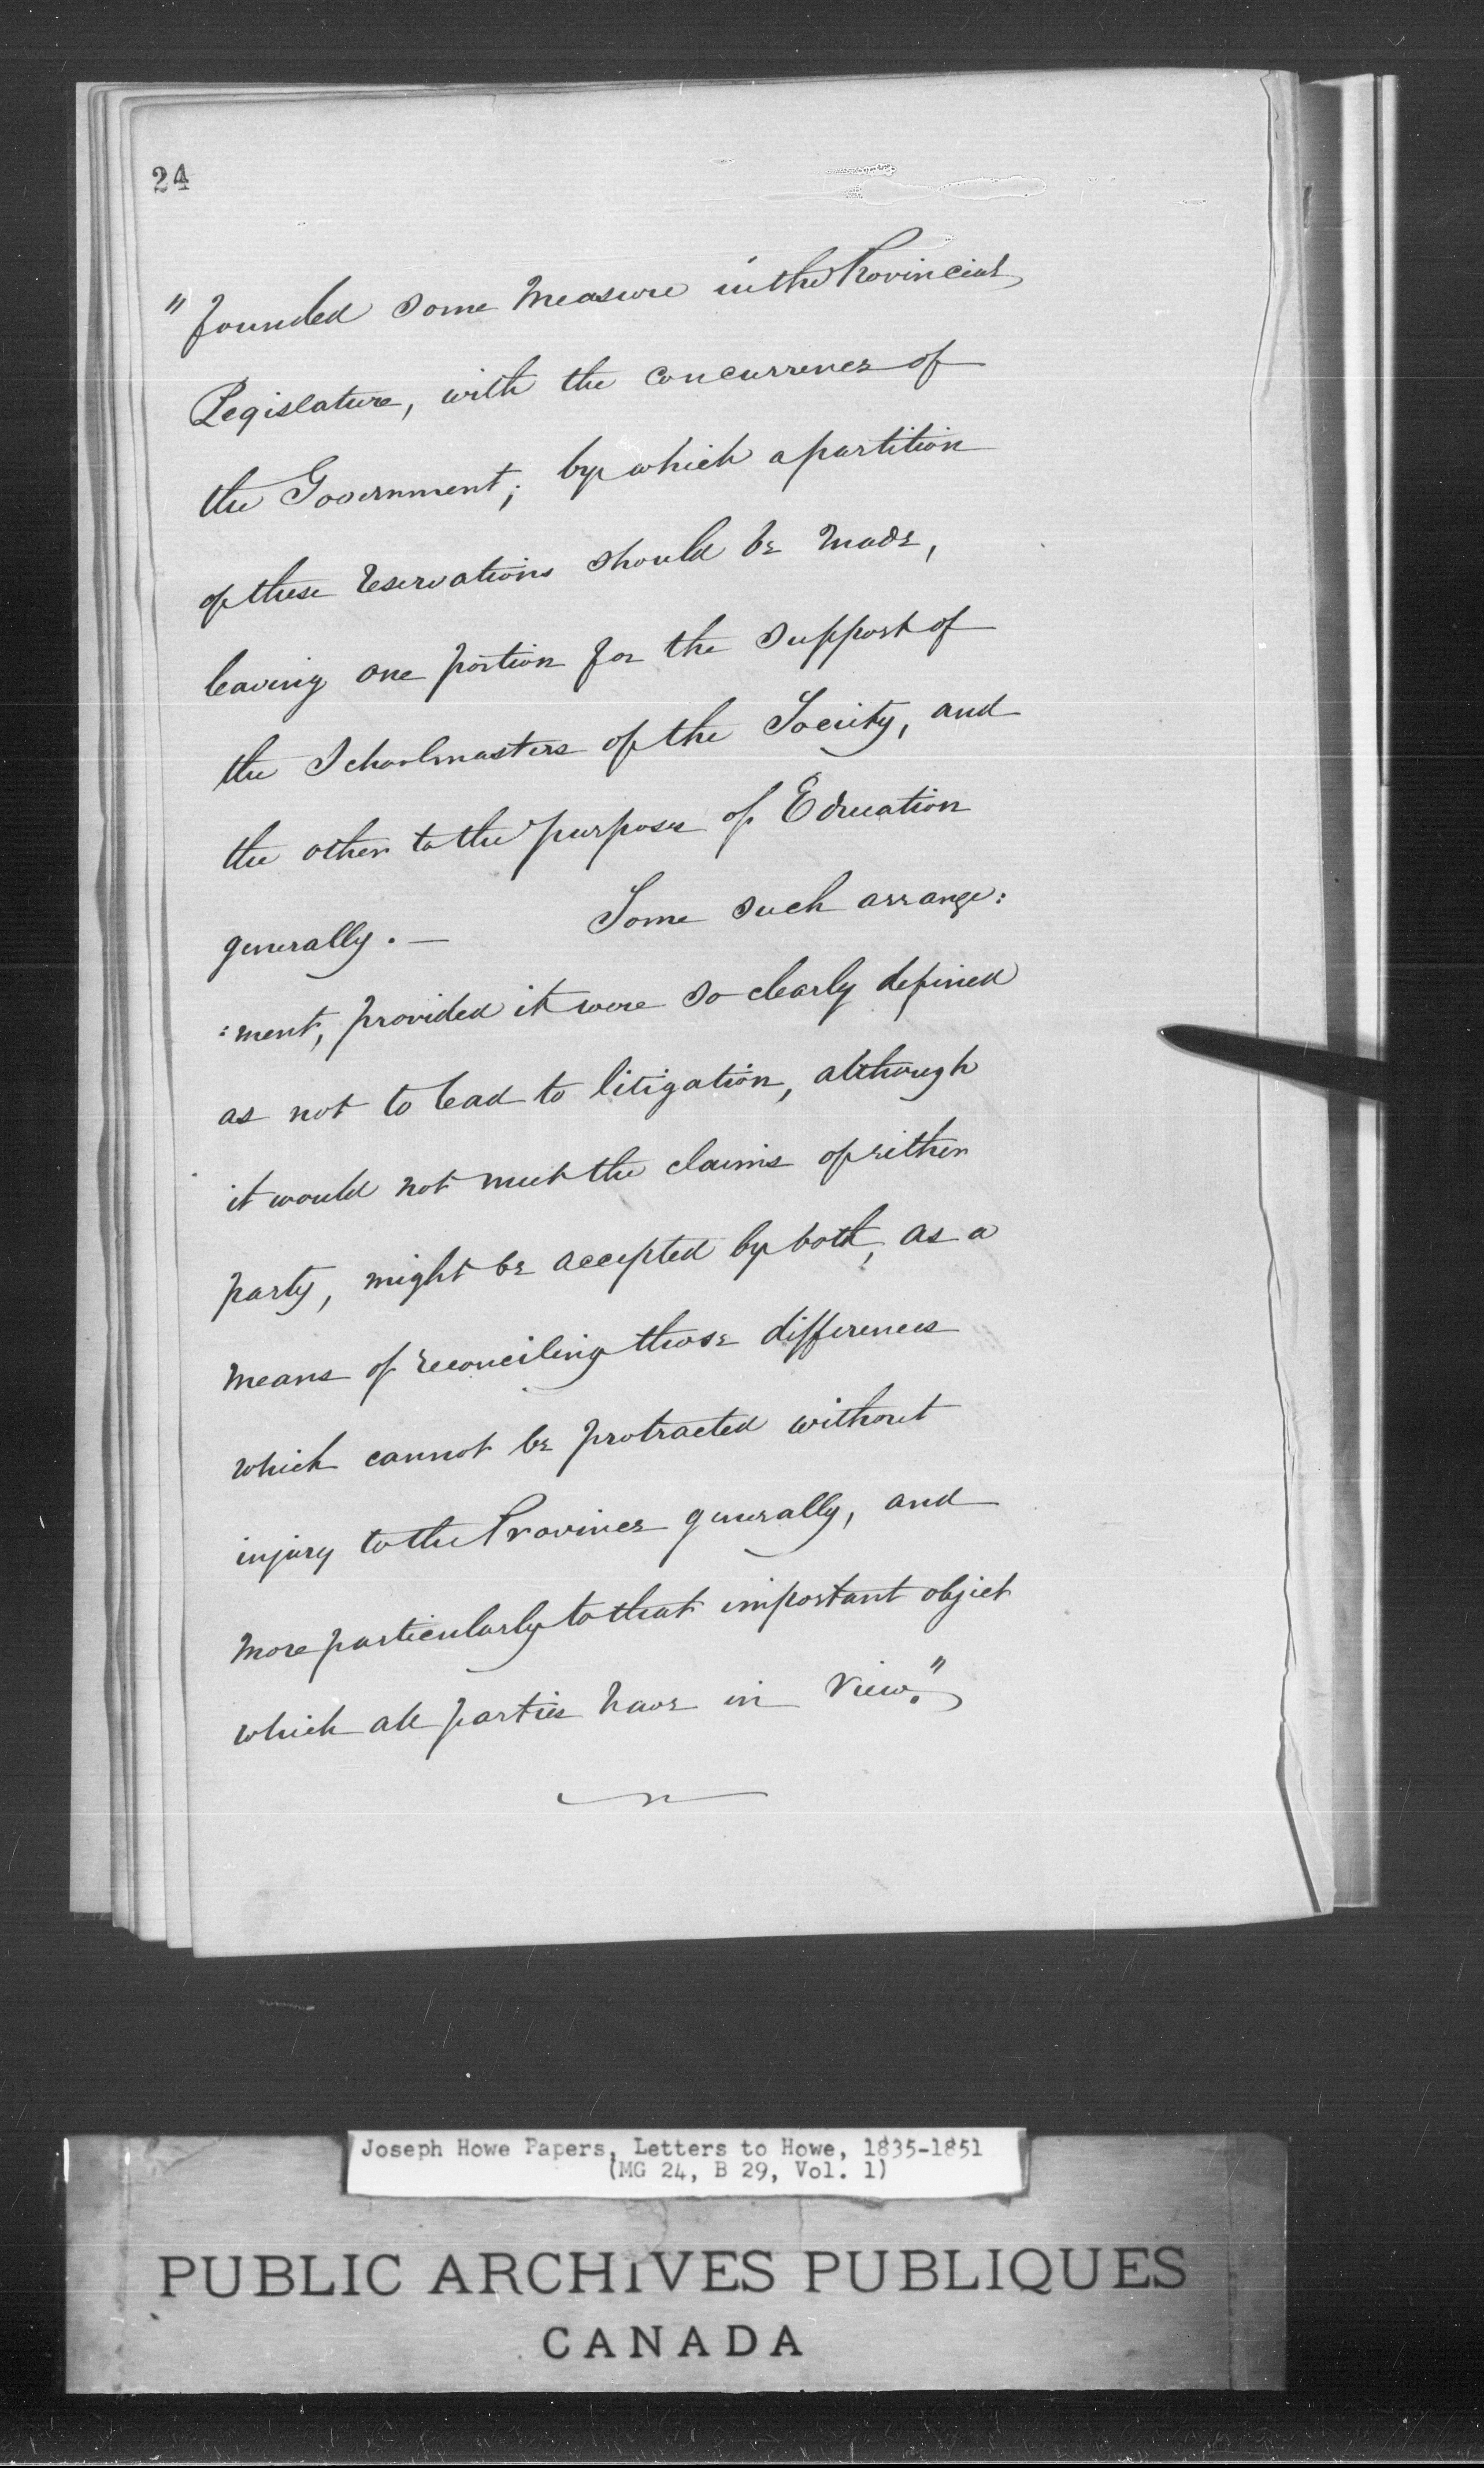 24
" founded some Measure in the Provincial
Legislature, with the concurrence of
the Government; by which a partition
of these reservations should be made,
leaving one portion for the support of
the Schoolmasters of the Society, and
the other to the purposes of Education
generally. — Some such arrange:
:ment, provided it were so clearly defined
as not to lead to litigation, although
it would not meet the claims of either
party, might be accepted by both, as a
means of reconciling those differences
which cannot be protracted without
injury to the Province generally, and
more particularly to that important object
which all parties have in view."
Joseph Howe Papers, Letters to Howe, 1835-1851
(MG 24, B 29, Vol. 1)
PUBLIC ARCHIVES PUBLIQUES
CANADA